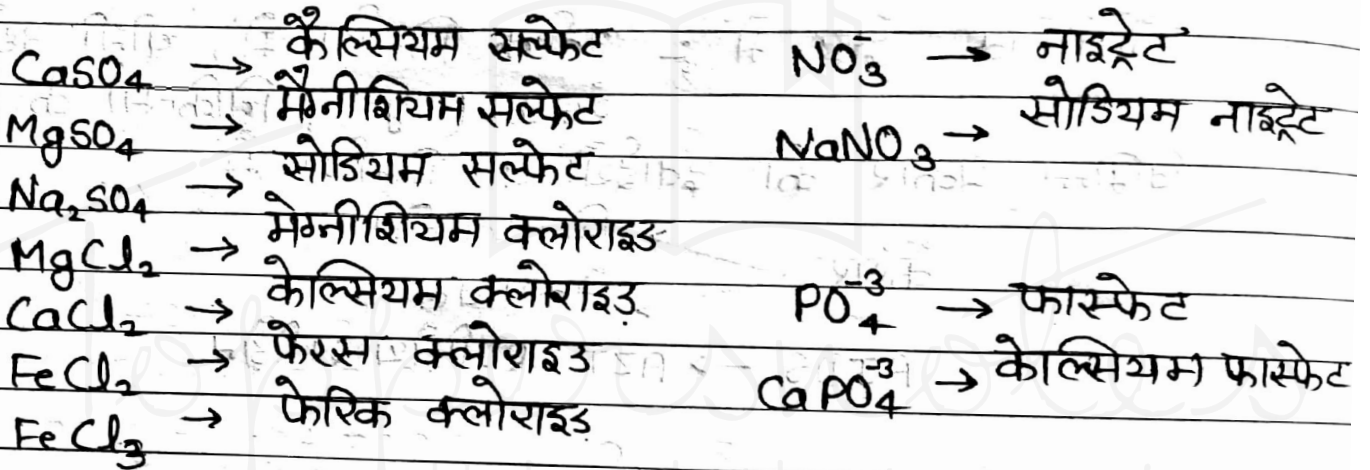 CaSO₄ → कैल्सियम सल्फेट
MgSO₄ → मैग्नीशियम सल्फेट
Na₂SO₄ → सोडियम सल्फेट
MgCl₂ → मेग्नीशियम क्लोराइड
CaCl₂ → केल्सियम क्लोराइड
FeCl₂ → फेरस क्लोराइड
FeCl₃ → फेरिक क्लोराइड
NO₃⁻ → नाइट्रेट
NaNO₃ → सोडियम नाइट्रेट
PO₄⁻³ → फास्फेट
CaPO₄⁻³ → केल्सियम फास्फेट